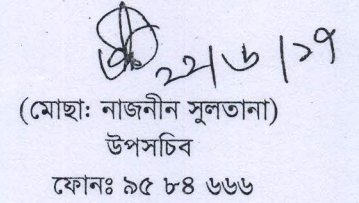 ২২/৬/১৭
(মোছাঃ নাজনীন সুলতানা)
উপসচিব
ফোনঃ ৯৫ ৮৪ ৬৬৬